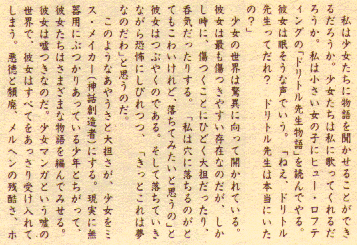 私は少女たちに物語を聞かせることができ
るだろうか。少女たちは私に歌ってくれるだ
ろうか。私は小さい女の子にヒュー・ロフテ
ィングの『ドリトル先生物語』を読んでやる。
彼女は眠そうな声でいう。「ねえ、ドリトル
先生ってだれ？ ドリトル先生は本当にいた
の？」
少女の世界は驚異に向って開かれている。
彼女は最も傷つきやすい存在なのだが、しか
し時に、傷つくことにひどく大胆だったり、
呑気だったりする。「私は穴に落ちるのがと
てもこわいけれど、落ちてみたいと思うの」と
彼女はつぶやくのである。そして落ちていき
ながら恐怖にしびれつつ、「きっとこれは夢
なのだわ」と思うのだ。
このようなあやうさと大担さが、少女をミ
ス・メイカー（神話創造者）にする。現実に無
器用にぶつかりあっている少年とちがって、
彼女たちはさまざまな物語を編んでみせる。
彼女は嘘つきなのだ。少女マンガという魔法
世界で、彼女はすべてをあっさり受け入れて
しまう。悪徳と頽廃、メルヘンの残酷さ、ホ